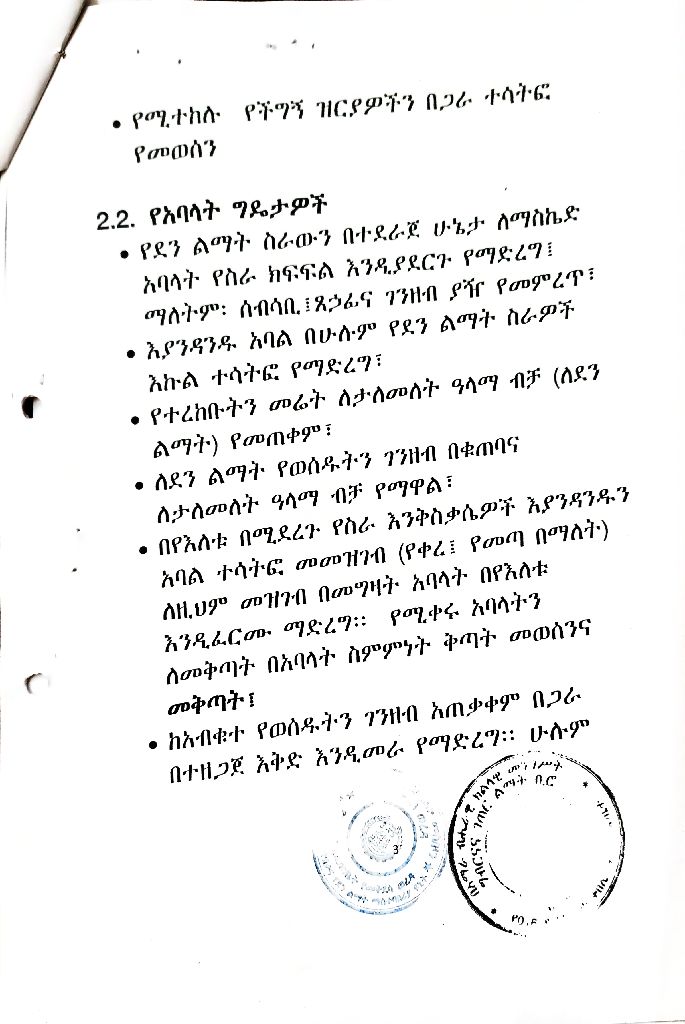 • የሚተከሉ የችግኝ ዝርያዎችን በጋራ ተሳትፎ
የመወሰን
2.2. የአባላት ግዴታዎች
• የደን ልማት ስራውን በተደራጀ ሁኔታ ለማስኬድ
አባላት የስራ ክፍፍል እንዲያደርጉ የማድረግ፤
ማለትም፡ ሰብሳቢ፤ጸኃፊና ገንዘብ ያዥ የመምረጥ፣
• እያንዳንዱ አባል በሁሉም የደን ልማት ስራዎች
እኩል ተሳትፎ የማድረግ፣
• የተረከቡትን መሬት ለታለመለት ዓላማ ብቻ (ለደን
ልማት) የመጠቀም፣
• ለደን ልማት የወሰዱትን ገንዘብ በቁጠባና
ለታለመለት ዓላማ ብቻ የማዋል፣
• በየእለቱ በሚደረጉ የስራ እንቅስቃሴዎች እያንዳንዱን
አባል ተሳትፎ መመዝገብ (የቀረ፤ የመጣ በማለት)
ለዚህም መዝገብ በመግዛት አባላት በየእለቱ
እንዲፈርሙ ማድረግ፡፡ የሚቀሩ አባላትን
ለመቅጣት በአባላት ስምምነት ቅጣት መወሰንና
መቅጣት፤
• ከአብቁተ የወሰዱትን ገንዘብ አጠቃቀም በጋራ
በተዘጋጀ እቅድ እንዲመራ የማድረግ፡፡ ሁሉም
3